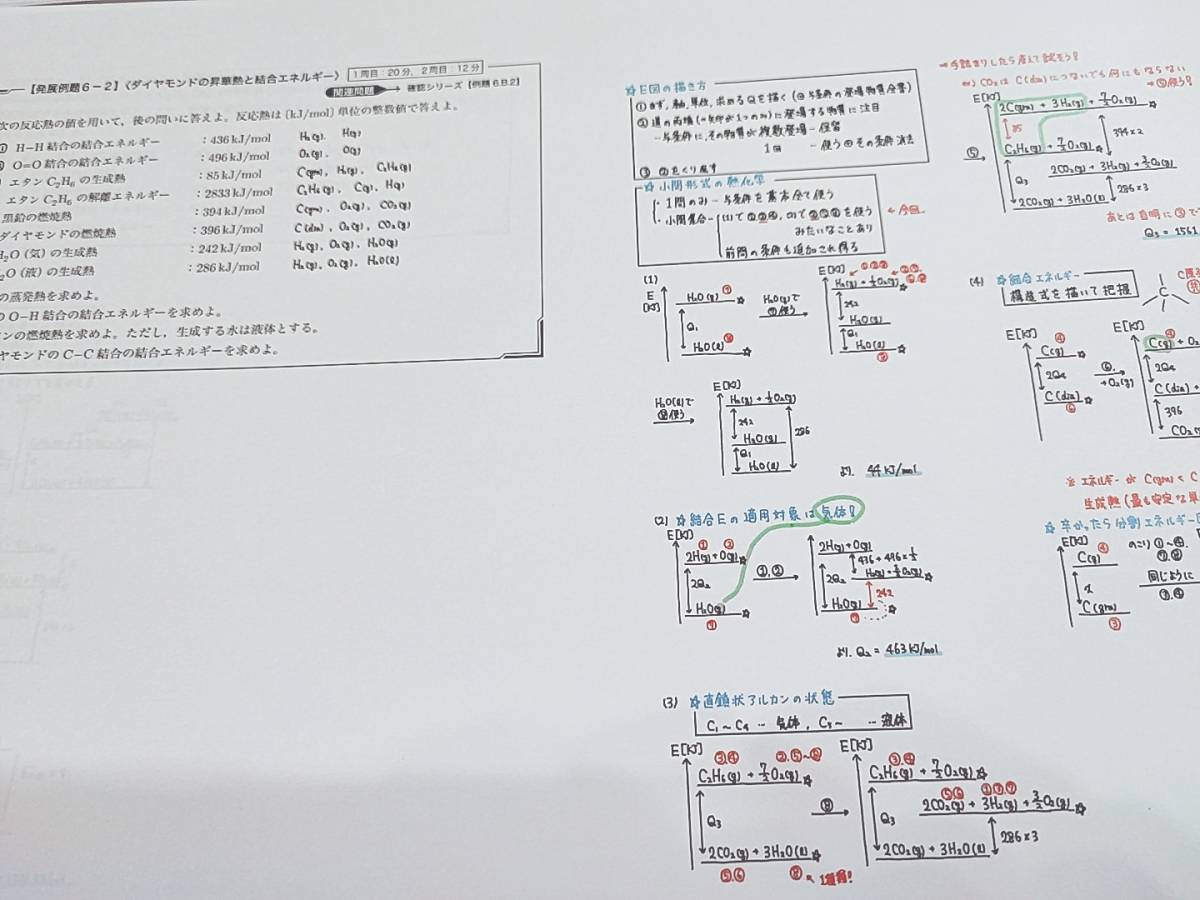 【発展例題6-2】〈ダイヤモンドの昇華熱と結合エネルギー〉 1周目:20分, 2周目:12分
関連問題 確認シリーズ【例題6.B.2】
次の反応熱の値を用いて，後の問いに答えよ。反応熱は〔kJ/mol〕単位の整数値で答えよ。
① H-H結合の結合エネルギー :436 kJ/mol H₂(g), H(g)
O=O結合の結合エネルギー :496 kJ/mol O₂(g), O(g)
エタンC₂H₆の生成熱 :85 kJ/mol C(gra), H₂(g), C₂H₆(g)
エタンC₂H₆の解離エネルギー :2833 kJ/mol C₂H₆(g), C(g), H(g)
黒鉛の燃焼熱 :394 kJ/mol C(gra), O₂(g), CO₂(g)
ダイヤモンドの燃焼熱 :396 kJ/mol C(dia), O₂(g), CO₂(g)
H₂O(気)の生成熱 :242 kJ/mol H₂(g), O₂(g), H₂O(g)
₂O(液)の生成熱 :286 kJ/mol H₂(g), O₂(g), H₂O(l)
の蒸発熱を求めよ。
のO-H結合の結合エネルギーを求めよ。
ンの燃焼熱を求めよ。ただし，生成する水は液体とする。
ヤモンドのC-C結合の結合エネルギーを求めよ。
☆E図の描き方
①まず, 軸, 単位, 求めるQを描く(◎与条件の登場物質全書)
②道の両端(=矢印が1つのみ)に登場する物質に注目
-与条件に, その物質が 複数登場-保留
1回 -使う◎その条件消去
③ ②をくり返す
☆小問形式の熱化学
・1問のみ-与条件を基本全て使う
・小問集合-(1)で①②③, (2)で②③④を使う
みたいなことあり ←今回。
前問の条件も追加され得る
(1)
E[kJ]
H₂O(g)⑦
Q₁
H₂O(l)⑧
H₂O(g)で⑦使う
E[kJ]
H₂(g)+½O₂(g)
242
H₂O(g)
Q₁
H₂O(l)
⑧
H₂O(l)で⑧使う
E[kJ]
H₂(g)+½O₂(g)
242
H₂O(g)
286
Q₁
H₂O(l)
より. 44 kJ/mol
(2) ☆結合Eの適用対象は気体!
E[kJ]
① ②
2H(g)+O(g)
2Q₂
H₂O(g)
⑦
①,②
E[kJ]
2H(g)+O(g)
436+496×½
2Q₂ H₂(g)+½O₂(g)
242
H₂O(g)
⑦
より. Q₂ = 463 kJ/mol
(3) ☆直鎖状アルカンの状態
C₁~C₄ … 気体, C₅~ … 液体
E[kJ]
③,④ ②,⑤~⑧
C₂H₆(g)+7/2O₂(g)
Q₃
2CO₂(g)+3H₂O(l)
⑤,⑥ ⑧←1種類!
⑧
E[kJ]
③,④
C₂H₆(g)+7/2O₂(g)
⑤⑥ ①③⑦
2CO₂(g)+3H₂(g)+3/2O₂(g)
Q₃
286×3
2CO₂(g)+3H₂O(l)
→手詰まりしたら考えて試そう!
ex) CO₂はC(dia)につないでも何にもならない
→⑤使う!
⑤
E[kJ]
2C(gra)+3H₂(g)+7/2O₂(g)
85
394×2
C₂H₆(g)+7/2O₂(g)
2CO₂(g)+3H₂(g)+3/2O₂(g)
Q₃
286×3
2CO₂(g)+3H₂O(l)
あとは自明に③で
Q₃=1561
(4) ☆結合エネルギー
構造式を描いて把握
C
E[kJ]
④
C(g)
2Q₄
C(dia)
⑥
⑥.
+O₂(g)
E[kJ]
④
C(g)+O₂
2Q₄
C(dia)+
396
CO₂(
※エネルギーが C(gra) < C
生成熱(最も安定な単
☆辛かったら分割エネルギー図
E[kJ]
④
C(g)
x
C(gra)
③
のこり①~④,
⑦,⑧
同じように
③,④